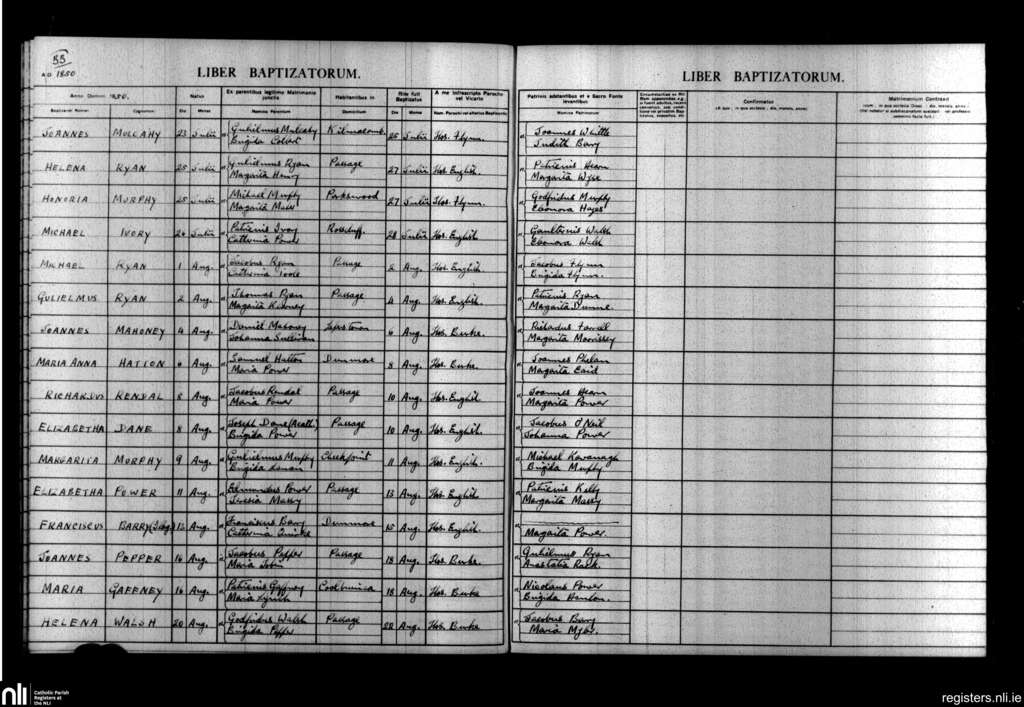 55
A.D. 1850
LIBER BAPTIZATORUM.
LIBER BAPTIZATORUM.
Anno Domini 1850.
Natus
Ex parentibus legitimo Matrimonio junctis
Habitantibus in
Rite fuit Baptizatus
A me infrascripto Parocho vel Vicario
Patrinis adstantibus et e Sacro Fonte levantibus
Confirmatus
Matrimonium Contraxit
Baptizati Nomen
Cognomen
Die
Mense
Nomina Parentum
Domicilium
Die
Mense
Nomina Patrinorum
JOANNES MULCAHY 23 Julii Gulielmus Mulcahy Kilmacomb. 25 Julii Hos. Flynn. Joannes Whittle
Brigida Judith Barry
HELENA RYAN 25 Julii Gulielmus Ryan Passage 27 Julii Hos. English. Patricius Hearn
Margarita Henry Margarita Wyse
HONORIA MURPHY 25 Julii Michael Murphy Parkswood 27 Julii Hos. Flynn. Godfridus Murphy
Margarita Eleonora Hayes
MICHAEL IVORY 26 Julii Patricius Ivory 28 Julii Hos. English Gaulterius Walsh
Catherina Power Eleonora Walsh
MICHAEL RYAN 1 Aug. Jacobus Ryan Passage 2 Aug. Hos. English Jacobus Flynn
Catherina Toole Brigida Flynn.
GULIELMUS RYAN 2 Aug. Thomas Ryan Passage 4 Aug. Hos. English. Patricius Ryan
Margarita Margarita Dunne.
JOANNES MAHONEY 4 Aug. Daniel Mahoney 6 Aug. Hos. Burke. Richardus Farrell
Johanna Sullivan Margarita Morrissey
MARIA ANNA HATTON 6 Aug. Samuel Hatton Dunmore 8 Aug. Hos. Burke. Joannes Phelan
Maria Power Margarita
RICHARDUS KENDAL 8 Aug. Jacobus Kendal Passage 10 Aug. Hos. English Joannes Hearn
Maria Power Margarita Power
ELIZABETHA DANE 8 Aug. Joseph Dane Passage 10 Aug. Hos. English. Jacobus O'Neil
Brigida Power Johanna Power
MARGARITA MURPHY 9 Aug. Gulielmus Murphy Cheekpoint 11 Aug. Hos. English. Michael Kavanagh
Brigida Brigida Murphy
ELIZABETHA POWER 11 Aug. Edmundus Power Passage 13 Aug. Hos. English Patricius Kelly
Teresia Massy Margarita Massy
FRANCISCUS BARRY 13 Aug. Franciscus Barry Dunmore 15 Aug. Hos. English.
Catherina Margarita Power.
JOANNES PEPPER 16 Aug. Jacobus Pepper Passage 18 Aug. Hos. Burke. Gulielmus Ryan
Maria Tobin Anastatia
MARIA GAFFNEY 16 Aug. Patricius Gaffney Coolbunnia 18 Aug. Hos. Burke Nicolaus Power
Maria Lynch Brigida Hanlon.
HELENA WALSH 20 Aug. Godfridus Walsh Passage 22 Aug. Hos. Burke Jacobus Barry
Brigida Pepper Maria
nli
Catholic Parish
Registers at
the NLI
registers.nli.ie